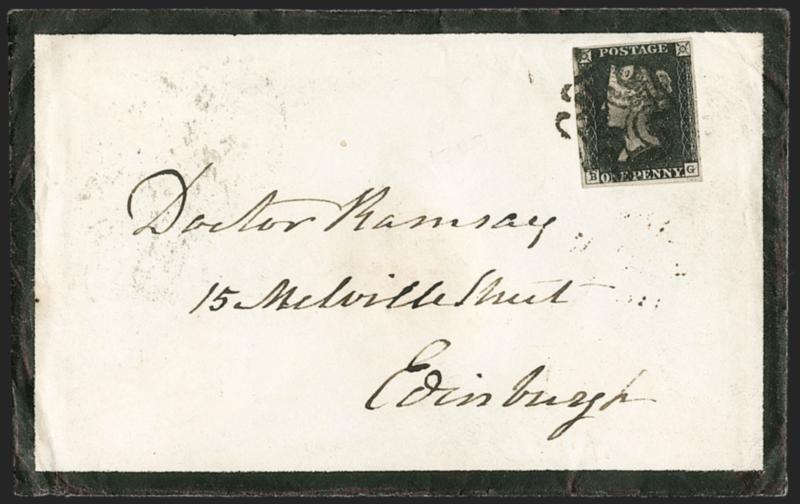 POSTAGE
B ONE PENNY G
Doctor Ramsay
15 Melville Street
Edinburgh